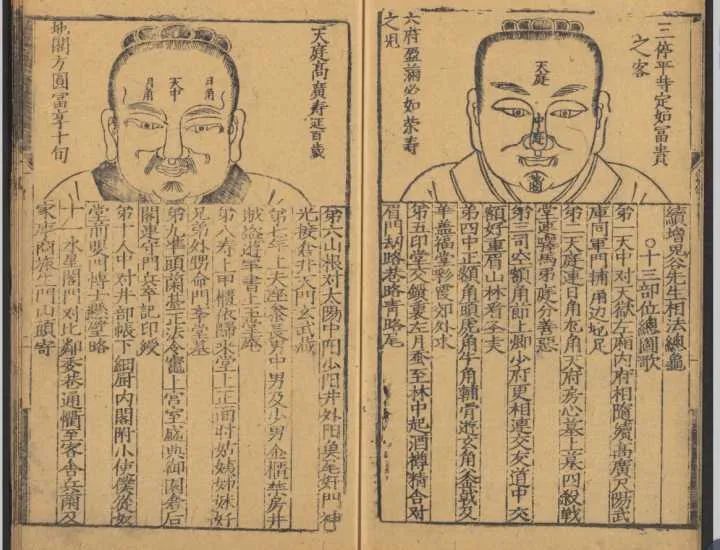 三停平等定如富貴
之客
六府盈滿必如榮壽
之皃
天庭
中庭
續增鬼谷先生相法總龜
○十三部位總圖歌
第一天中対天獄左廂內府相隨續高廣尺陽武
庫同軍門輔角边地足
第二天庭連日角龙角天府房心墓上墓四殺戰
堂連驛馬弔庭分善惡
第三司空額角前上卿少府更相連交友道中交
額好重眉山林看圣夫
第四中正額角頭虎角牛角輔骨遊玄角釜戟及
华盖福堂彩霞郊外求
第五印堂交鎖裏左目蚕室林中起酒樽精舍対
眉門劫路巷路青路尾
天庭高廣壽延百歲
地閣方圓富享十旬
日角
天中
月角
第六山根対太陽中阳少阳并外阳魚尾奸門神
光接倉井天門玄武藏
第七年上夫座參長男中男及少男金櫃禁房并
賊盗遊軍書上玉堂庵
第八寿上甲櫃依歸來堂上正面时姑姨姊妹好
兄弟外甥命門李堂基
第九凖頭蘭基正法令竈上宮室盛典御園倉后
閣連守門兵卒記印綬
第十人中対井部帳下細厨內閣附小使僕從奴
堂前嬰門博士懸堂略
十一水星閣門対比鄰委巷通衢至客舍兵蘭及
家庫商旅生門山頭寄